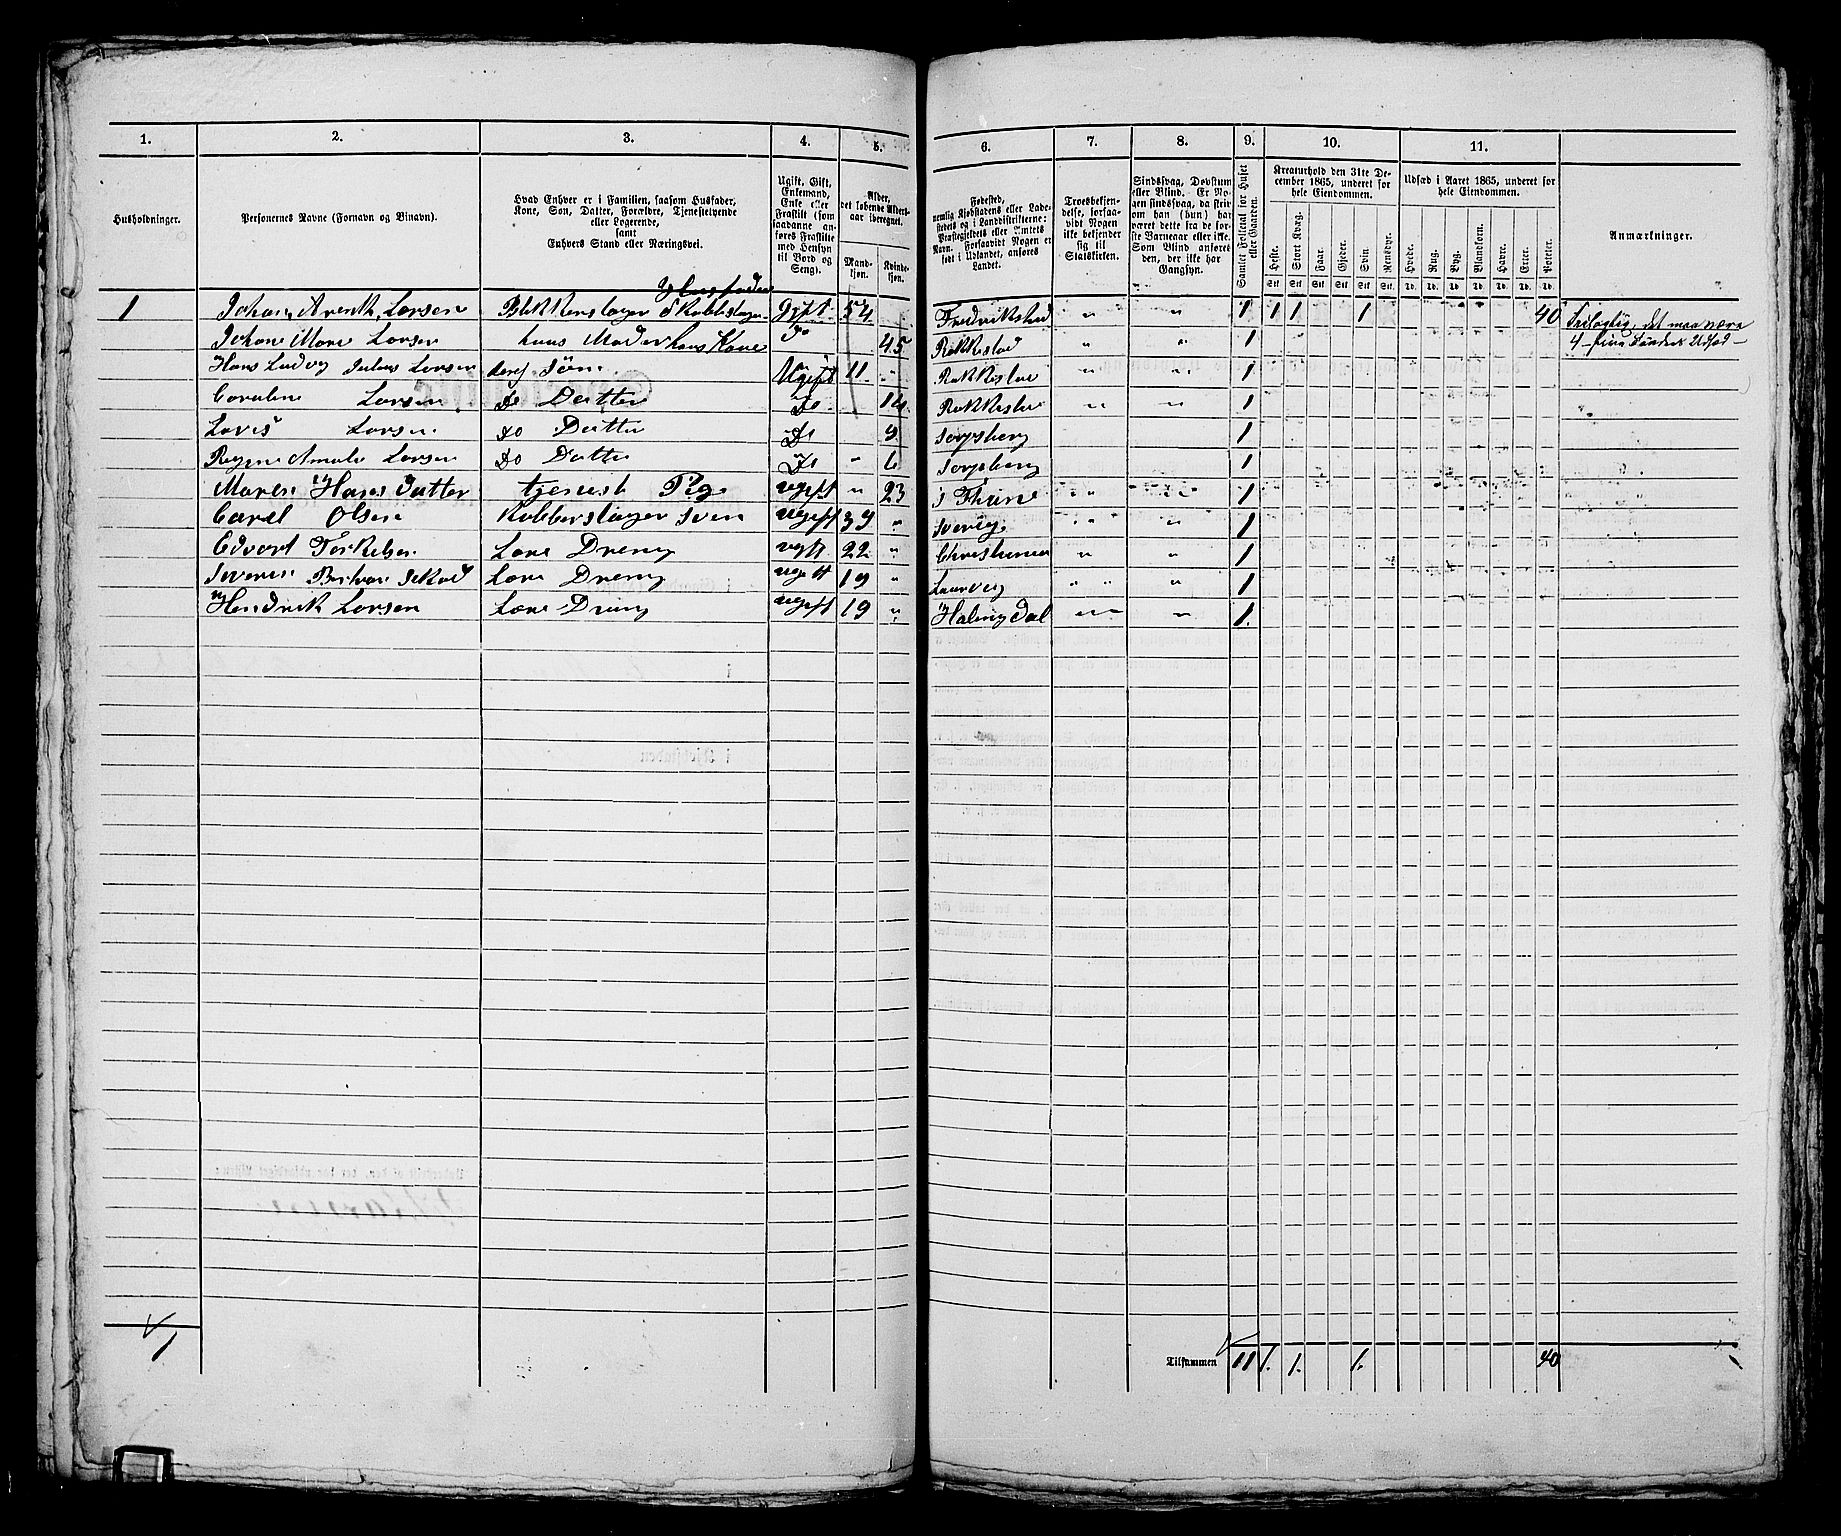 1. 2. 3. 4. 5. 6. 7. 8. 9. 10. 11.
Husholdninger.
Personernes Navne (Fornavn og Binavn).
Hvad Enhver er i Familien, saasom Husfader,
Kone, Søn, Datter, Forældre, Tjenestetyende
eller Logerende,
samt
Enhvers Stand eller Næringsvei.
Ugift, Gift,
Enkemand,
Enke eller
Fraskilt (som
saadanne an-
føres Fraskilte
med Hensyn
til Bord og
Seng).
Alder,
det løbende Alders-
aar iberegnet.
Mand-
kjøn.
Kvinde-
kjøn.
Fødested,
nemlig Kjøbstadens eller Lade-
stedets og i Landdistrikterne:
Præstegjeldets eller Amtets
Navn. Forsaavidt Nogen er
født i Udlandet, anføres
Landet.
Troesbekjen-
delse, forsaa-
vidt Nogen
ikke bekjender
sig til
Statskirken.
Sindssvag, Døvstum
eller Blind. Er No-
gen sindssvag, da skriv
om han (hun) har
været dette fra de før-
ste Barneaar eller ikke.
Som Blind anføres
den, der ikke har
Gangsyn.
Samlet Folketal for Huset
eller Gaarden.
Kreaturhold den 31te De-
cember 1865, underet for
hele Eiendommen.
Heste. Stort Kvæg. Faar. Gjeder. Svin. Rensdyr.
Stk. Stk. Stk. Stk. Stk. Stk.
Udsæd i Aaret 1865, underet for
hele Eiendommen.
Hvede. Rug. Byg. Blandkorn. Havre. Erter. Poteter.
Td. Td. Td. Td. Td. Td. Td.
Anmærkninger.
1 Johan Arentk Larsen Blikkenslager & Kobberslager Gift 54 Fredrikstad " " 1 1 1 1 40
Johane Mare Larsen huus Moder hans Kone Do 45 Rakkestad " " 1
Hans Ludvig Julius Larsen deres Søn Ugift 11 " Rakkestad " " 1
Coraline Larsen Do Datter Do 14 Rakkestad " " 1
Lovis Larsen Do Datter Do 9 Sarpsborg 1
Regine Amalie Larsen Do Datter Do " 6 Sarpsborg 1
Maren Hans Datter tjeneste Pige ugift " 23 Thune " " 1
Carel Olsen Kobberslager Sven ugift 39 " Sverig " " 1
Edvart Torkelsen Lære Dreng ugift 22 " Christiania " " 1
Lære Dreng ugift 19 " Laurvig " " 1
Hendrik Larsen Lære Dreng ugift 19 " Halingdal " " 1.
det maa være
4 - fire Tønder Udsæd -
1
Tilsammen 11 1. 1. 1. 40